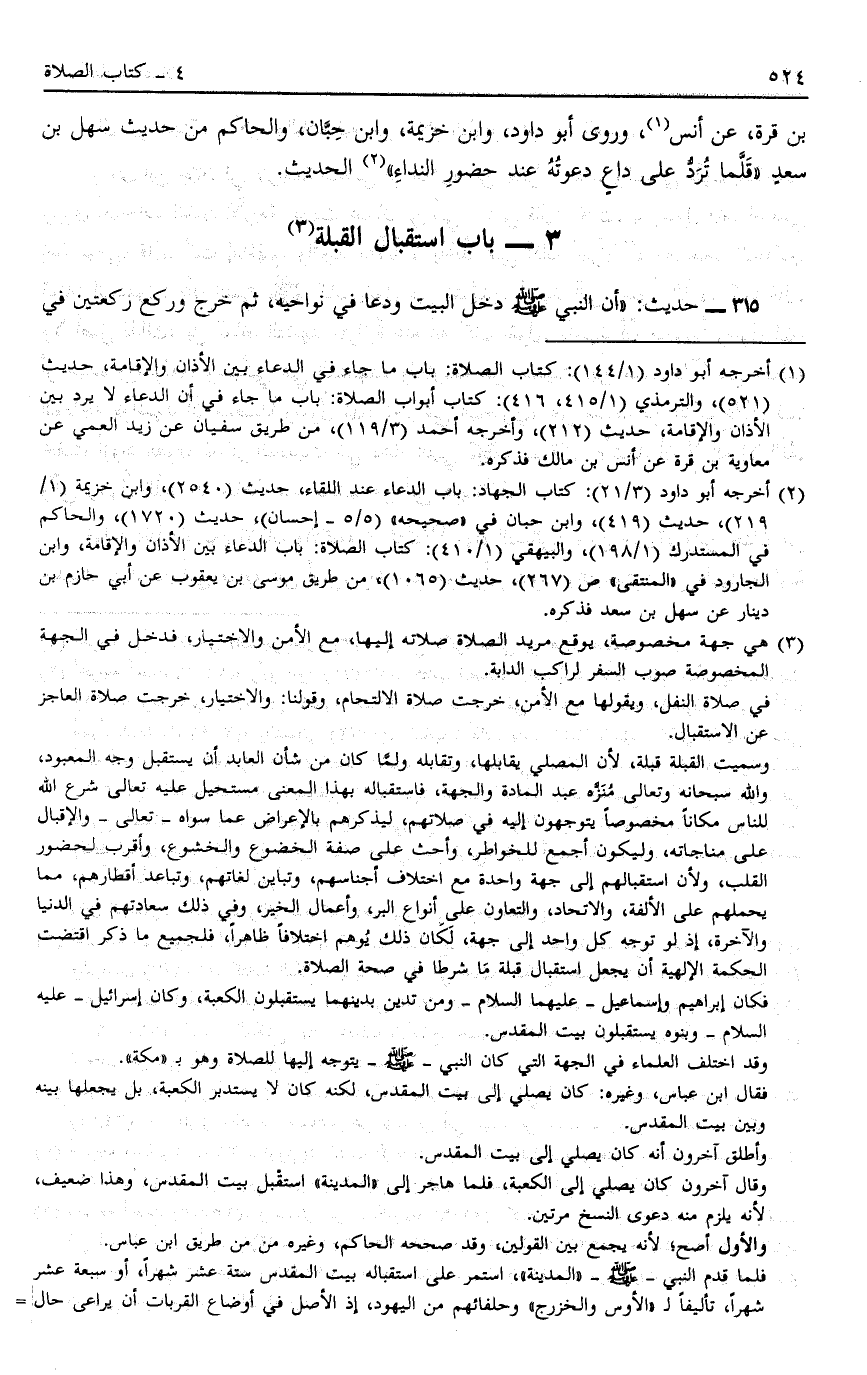 ٥٢٤
٤ ـ كتاب الصلاة
بن قرة، عن أنس(١)، وروى أبو داود، وابن خزيمة، وابن حِبَّان، والحاكم من حديث سهل بن
سعدٍ «قَلَّما تُرَدُّ على داعٍ دعوتُهُ عند حضورِ النداءِ»(٢) الحديث.
٣ ـــ باب استقبال القبلة(٣)
٣١٥ ـــ حديث: «أن النبي ﷺ دخل البيت ودعا في نواحيه، ثم خرج وركع ركعتين في
(١) أخرجه أبو داود (١/١٤٤): كتاب الصلاة: باب ما جاء في الدعاء بين الأذان والإقامة، حديث
(٥٢١)، والترمذي (١/٤١٥، ٤١٦): كتاب أبواب الصلاة: باب ما جاء في أن الدعاء لا يرد بين
الأذان والإقامة، حديث (٢١٢)، وأخرجه أحمد (٣/١١٩)، من طريق سفيان عن زيد العمي عن
معاوية بن قرة عن أنس بن مالك فذكره.
(٢) أخرجه أبو داود (٣/٢١): كتاب الجهاد: باب الدعاء عند اللقاء، حديث (٢٥٤٠)، وابن خزيمة (١/
٢١٩)، حديث (٤١٩)، وابن حبان في «صحيحه» (٥/٥ ـ إحسان)، حديث (١٧٢٠)، والحاكم
في المستدرك (١/١٩٨)، والبيهقي (١/٤١٠): كتاب الصلاة: باب الدعاء بين الأذان والإقامة، وابن
الجارود في «المنتقى» ص (٢٦٧)، حديث (١٠٦٥)، من طريق موسى بن يعقوب عن أبي حازم بن
دينار عن سهل بن سعد فذكره.
(٣) هي جهة مخصوصة، يوقع مريد الصلاة صلاته إليها، مع الأمن والاختيار، فدخل في الجهة
المخصوصة صوب السفر لراكب الدابة.
في صلاة النفل، ويقولها مع الأمن، خرجت صلاة الالتحام، وقولنا: والاختيار، خرجت صلاة العاجز
عن الاستقبال.
وسميت القبلة قبلة، لأن المصلي يقابلها، وتقابله ولمَّا كان من شأن العابد أن يستقبل وجه المعبود،
والله سبحانه وتعالى مُنَزَّه عبد المادة والجهة، فاستقباله بهذا المعنى مستحيل عليه تعالى شرع الله
للناس مكاناً مخصوصاً يتوجهون إليه في صلاتهم، ليذكرهم بالإعراض عما سواه ـ تعالى ـ والإقبال
على مناجاته، وليكون أجمع للخواطر، وأحث على صفة الخضوع والخشوع، وأقرب لحضور
القلب، ولأن استقبالهم إلى جهة واحدة مع اختلاف أجناسهم، وتباين لغاتهم، وتباعد أقطارهم، مما
يحملهم على الألفة، والاتحاد، والتعاون على أنواع البر، وأعمال الخير، وفي ذلك سعادتهم في الدنيا
والآخرة، إذ لو توجه كل واحد إلى جهة، لَكَان ذلك يُوهم اختلافاً ظاهراً، فلجميع ما ذكر اقتضت
الحكمة الإلهية أن يجعل استقبال قبلة مَا شرطا في صحة الصلاة.
فكان إبراهيم وإسماعيل ـ عليهما السلام ـ ومن تدين بدينهما يستقبلون الكعبة، وكان إسرائيل ـ عليه
السلام ـ وبنوه يستقبلون بيت المقدس.
وقد اختلف العلماء في الجهة التي كان النبي ـ ﷺ ـ يتوجه إليها للصلاة وهو بـ «مكة».
فقال ابن عباس، وغيره: كان يصلي إلى بيت المقدس، لكنه كان لا يستدبر الكعبة، بل يجعلها بينه
وبين بيت المقدس.
وأطلق آخرون أنه كان يصلي إلى بيت المقدس.
وقال آخرون كان يصلي إلى الكعبة، فلما هاجر إلى «المدينة» استقْبل بيت المقدس، وهذا ضعيف،
لأنه يلزم منه دعوى النسخ مرتين.
والأول أصح؛ لأنه يجمع بين القولين، وقد صححه الحاكم، وغيره من من طريق ابن عباس.
فلما قدم النبي ـ ﷺ ـ «المدينة»، استمر على استقباله بيت المقدس ستة عشر شهراً، أو سبعة عشر
شهراً، تأليفاً لـ «الأوس والخزرج» وحلفائهم من اليهود، إذ الأصل في أوضاع القربات أن يراعى حال =